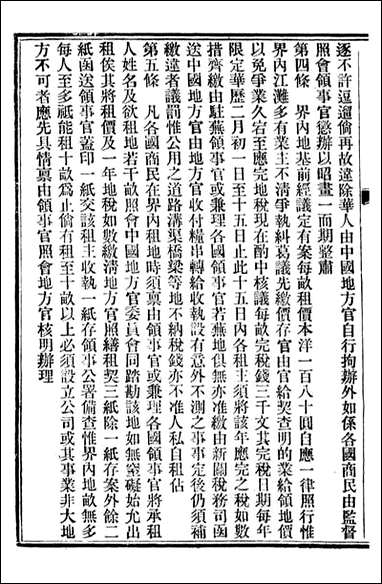 逐不許逗遛倘再故違除華人由中國地方官自行拘辦外如係各國商民由監督
照會領事官懲辦以昭畫一而期整肅
第四條　界內地基前經議定有案每畝租價本洋一百八十圓自應一律照行惟
界內江灘多有業主不清爭執糾葛議先繳價存官由官給契查明的業給領地價
以免爭業久宕至應完地稅現在酌中核議每畝完稅錢三千文其完稅日期每年
限定華歷二月初一日至十五日止此十五日內各租主須將該年應完之稅如數
措齊繳由駐蕪領事官或兼理各國領事官若蕪地俱無亦准繳由新關稅務司函
送中國地方官由地方官收付糧串轉給收執設有意外不測之事事定後仍須補
繳違者議罰惟公用之道路溝渠橋梁等地不納稅錢亦不准人私自租佔
第五條　凡各國商民在界內租地時須稟由領事官或兼理各國領事官將承租
人姓名及欲租地若干畝照會中國地方官委員會同踏勘該地如無窒礙始允出
租俟其將租價及一年地稅如數繳清地方官照繕租契三紙除一紙存案外餘二
紙函送領事官蓋印一紙交該租主收執一紙存領事公署備查惟界內地畝無多
每人至多祇能租十畝為止倘有租至十畝以上必須設立公司或其事業非大地
方不可者應先具情稟由領事官照會地方官核明辦理